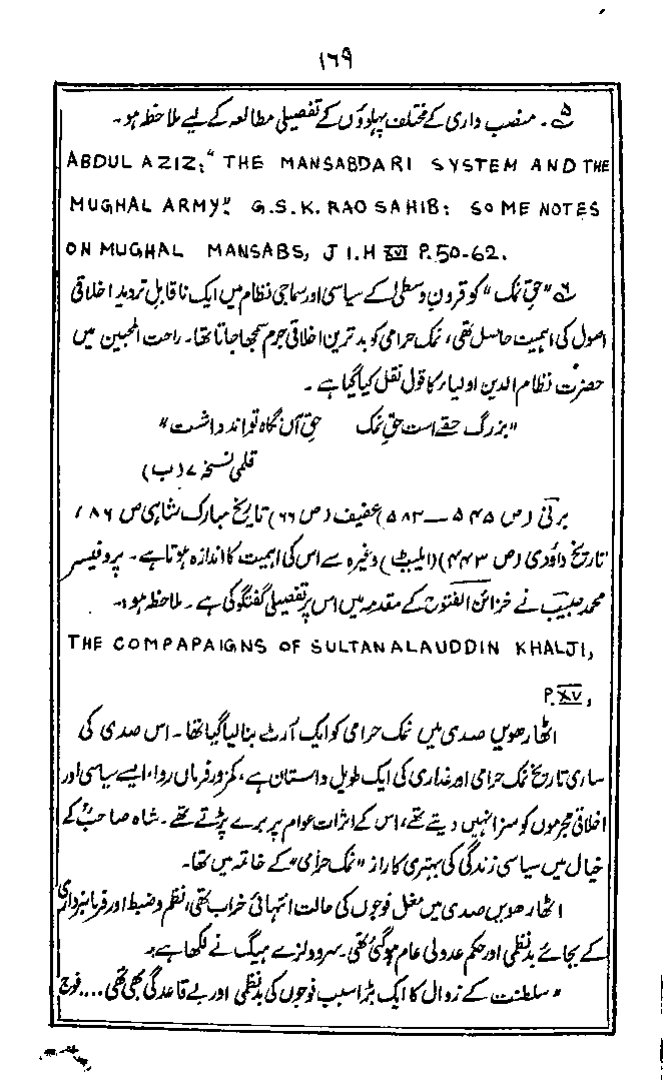 ۱۶۹
۵۔ منصب داری کے مختلف پہلوؤں کے تفصیلی مطالعہ کے لیے ملاحظہ ہو۔
ABDUL AZIZ: "THE MANSABDARI SYSTEM AND THE
MUGHAL ARMY". G.S.K. RAO SAHIB: SOME NOTES
ON MUGHAL MANSABS, J I.H XVI P.50-62.
۶ "حق نمک" کو قرون وسطیٰ کے سیاسی اور سماجی نظام میں ایک ناقابل تردید اخلاقی
اصول کی اہمیت حاصل تھی، نمک حرامی کو بدترین اخلاقی جرم سمجھا جاتا تھا۔ راحت المحبین میں
حضرت نظام الدین اولیاء کا قول نقل کیا گیا ہے ۔
"بزرگ حقے است حق نمک حق آں نگاه تواند داشت"
قلمی نسخہ ۷ (ب)
برنی (ص ۵۴۵ — ۵۸۳) عفیف (ص ۶۶) تاریخ مبارک شاہی ص ۸۶ /
تاریخ داؤدی (ص ۴۴۳) (ایلیٹ) وغیرہ سے اس کی اہمیت کا اندازہ ہوتا ہے۔ پروفیسر
محمد حبیب نے خزائن الفتوح کے مقدمہ میں اس پر تفصیلی گفتگو کی ہے ۔ ملاحظہ ہو:۔
THE COMPAPAIGNS OF SULTAN ALAUDDIN KHALJI,
P. XV,
اٹھارھویں صدی میں نمک حرامی کو ایک آرٹ بنا لیا گیا تھا ۔ اس صدی کی
ساری تاریخ نمک حرامی اور غداری کی ایک طویل داستان ہے، کمزور فرماں روا، ایسے سیاسی اور
اخلاقی مجرموں کو سزا نہیں دیتے تھے، اس کے اثرات عوام پر برے پڑتے تھے ۔ شاہ صاحبؒ کے
خیال میں سیاسی زندگی کی بہتری کا راز "نمک حرامی" کے خاتمہ میں تھا۔
اٹھارھویں صدی میں مغل فوجوں کی حالت انتہائی خراب تھی، نظم و ضبط اور فرمانبرداری
کے بجائے بدنظمی اور حکم عدولی عام ہوگئی تھی۔ سر وولزے ہیگ نے لکھا ہے:۔
"سلطنت کے زوال کا ایک بڑا سبب فوجوں کی بدنظمی اور بے قاعدگی بھی تھی .... فوج